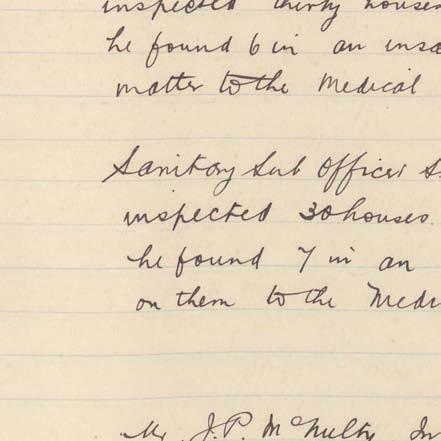 inspected thirty houses
he found 6 in an insa
matter to the Medical
Sanitary Sub Officer S
inspected 30 houses.
he found 7 in an
on them to the Medi
Mr J.P. McNulty In